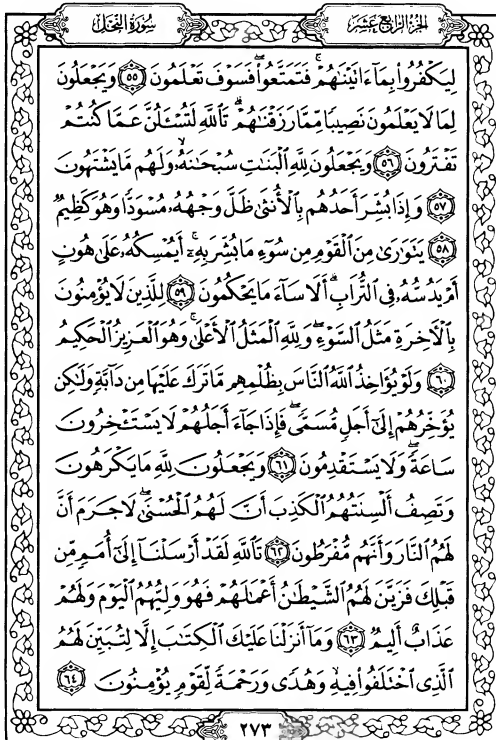 سُورَةُ النَّحۡلِ
الجُزءُ الرَّابِعَ عَشَرَ
لِيَكۡفُرُواْ بِمَآ ءَاتَيۡنَٰهُمۡۚ فَتَمَتَّعُواْ فَسَوۡفَ تَعۡلَمُونَ ٥٥ وَيَجۡعَلُونَ
لِمَا لَا يَعۡلَمُونَ نَصِيبٗا مِّمَّا رَزَقۡنَٰهُمۡۗ تَٱللَّهِ لَتُسۡـَٔلُنَّ عَمَّا كُنتُمۡ
تَفۡتَرُونَ ٥٦ وَيَجۡعَلُونَ لِلَّهِ ٱلۡبَنَٰتِ سُبۡحَٰنَهُۥ وَلَهُم مَّا يَشۡتَهُونَ
٥٧ وَإِذَا بُشِّرَ أَحَدُهُم بِٱلۡأُنثَىٰ ظَلَّ وَجۡهُهُۥ مُسۡوَدّٗا وَهُوَ كَظِيمٞ
٥٨ يَتَوَٰرَىٰ مِنَ ٱلۡقَوۡمِ مِن سُوٓءِ مَا بُشِّرَ بِهِۦٓۚ أَيُمۡسِكُهُۥ عَلَىٰ هُونٍ
أَمۡ يَدُسُّهُۥ فِي ٱلتُّرَابِۗ أَلَا سَآءَ مَا يَحۡكُمُونَ ٥٩ لِلَّذِينَ لَا يُؤۡمِنُونَ
بِٱلۡأٓخِرَةِ مَثَلُ ٱلسَّوۡءِۖ وَلِلَّهِ ٱلۡمَثَلُ ٱلۡأَعۡلَىٰۚ وَهُوَ ٱلۡعَزِيزُ ٱلۡحَكِيمُ
٦٠ وَلَوۡ يُؤَاخِذُ ٱللَّهُ ٱلنَّاسَ بِظُلۡمِهِم مَّا تَرَكَ عَلَيۡهَا مِن دَآبَّةٖ وَلَٰكِن
يُؤَخِّرُهُمۡ إِلَىٰٓ أَجَلٖ مُّسَمّٗىۖ فَإِذَا جَآءَ أَجَلُهُمۡ لَا يَسۡتَـٔۡخِرُونَ
سَاعَةٗ وَلَا يَسۡتَقۡدِمُونَ ٦١ وَيَجۡعَلُونَ لِلَّهِ مَا يَكۡرَهُونَ
وَتَصِفُ أَلۡسِنَتُهُمُ ٱلۡكَذِبَ أَنَّ لَهُمُ ٱلۡحُسۡنَىٰۖ لَا جَرَمَ أَنَّ
لَهُمُ ٱلنَّارَ وَأَنَّهُم مُّفۡرَطُونَ ٦٢ تَٱللَّهِ لَقَدۡ أَرۡسَلۡنَآ إِلَىٰٓ أُمَمٖ مِّن
قَبۡلِكَ فَزَيَّنَ لَهُمُ ٱلشَّيۡطَٰنُ أَعۡمَٰلَهُمۡ فَهُوَ وَلِيُّهُمُ ٱلۡيَوۡمَ وَلَهُمۡ
عَذَابٌ أَلِيمٞ ٦٣ وَمَآ أَنزَلۡنَا عَلَيۡكَ ٱلۡكِتَٰبَ إِلَّا لِتُبَيِّنَ لَهُمُ
ٱلَّذِي ٱخۡتَلَفُواْ فِيهِ وَهُدٗى وَرَحۡمَةٗ لِّقَوۡمٖ يُؤۡمِنُونَ ٦٤
٢٧٣